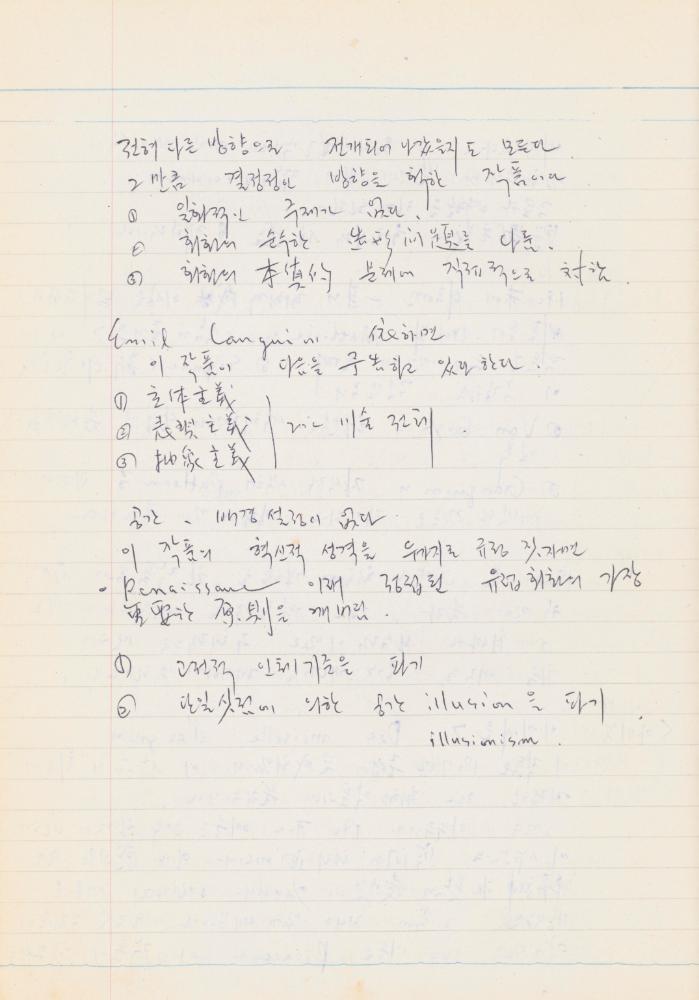 전혀 다른 방향으로 전개되어 나갔을지도 모른다
그만큼 결정적인 방향을 취한 작품이다
① 일화적인 주제가 없다.
② 회화의 순수한 造形問題를 다룸.
③ 회화의 本質的 문제에 직접적으로 対함.
Emil Langui에 依하면
이 작품이 다음을 予告하고 있다 한다.
① 立体主義
② 表現主義
③ 抽象主義
그리고 미술 전체
공간、배경설정이 없다.
이 작품의 혁신적 성격을 두가지로 규정 짓자면
• Renaissance 이래 정립된 유럽회화의 가장
重要한 原則을 깨버림.
① 고전적 인체기준을 파기
② 단일시점에 의한 공간 illusion을 파기.
illusionism.